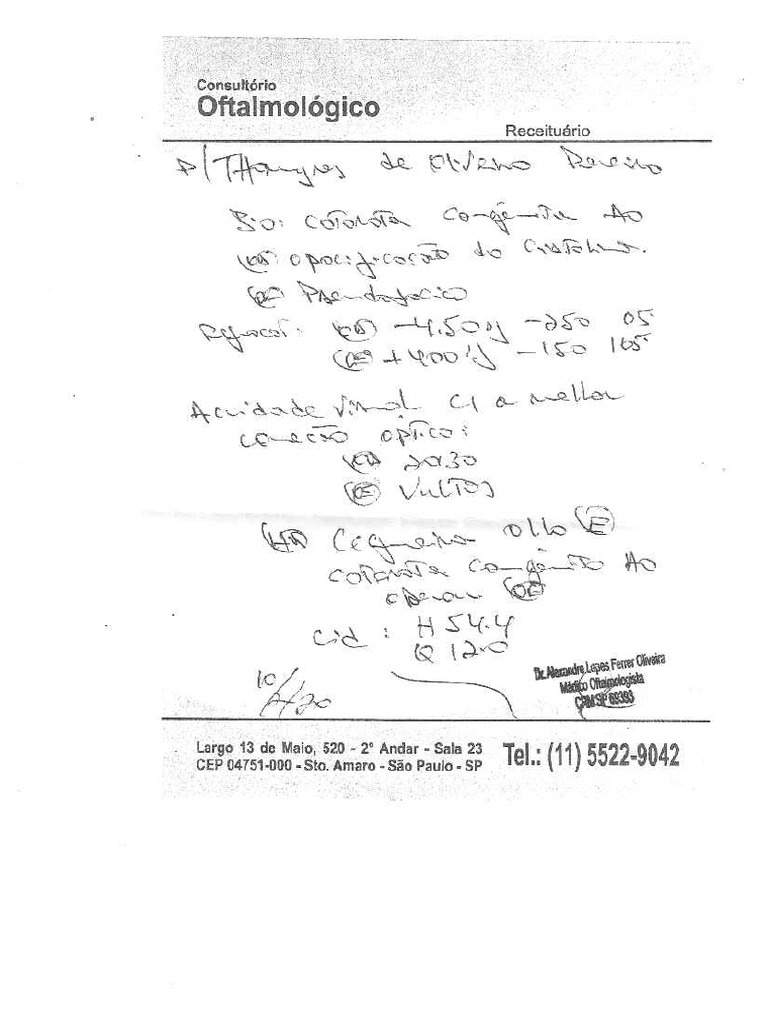 Consultório
Oftalmológico
Receituário
P/ de Oliveira Pereira
Bio: catarata congênita AO
OD: opacificação do cristalino.
OE Pseudofacia
Refracat: OD -4.50 -250 05
OE +400 -150 165
Acuidade visual c/ a melhor
correção óptica:
OD 20130
OE Vultos
HD Cegueira olho E
catarata congênita AO
OE
Cid: H 54.4
Q 12.0
10/ /20
Dr. Alexandre Lopes Ferrer Oliveira
Médico Oftalmologista
CRM SP 69393
Largo 13 de Maio, 520 - 2º Andar - Sala 23
CEP 04751-000 - Sto. Amaro - São Paulo - SP
Tel.: (11) 5522-9042